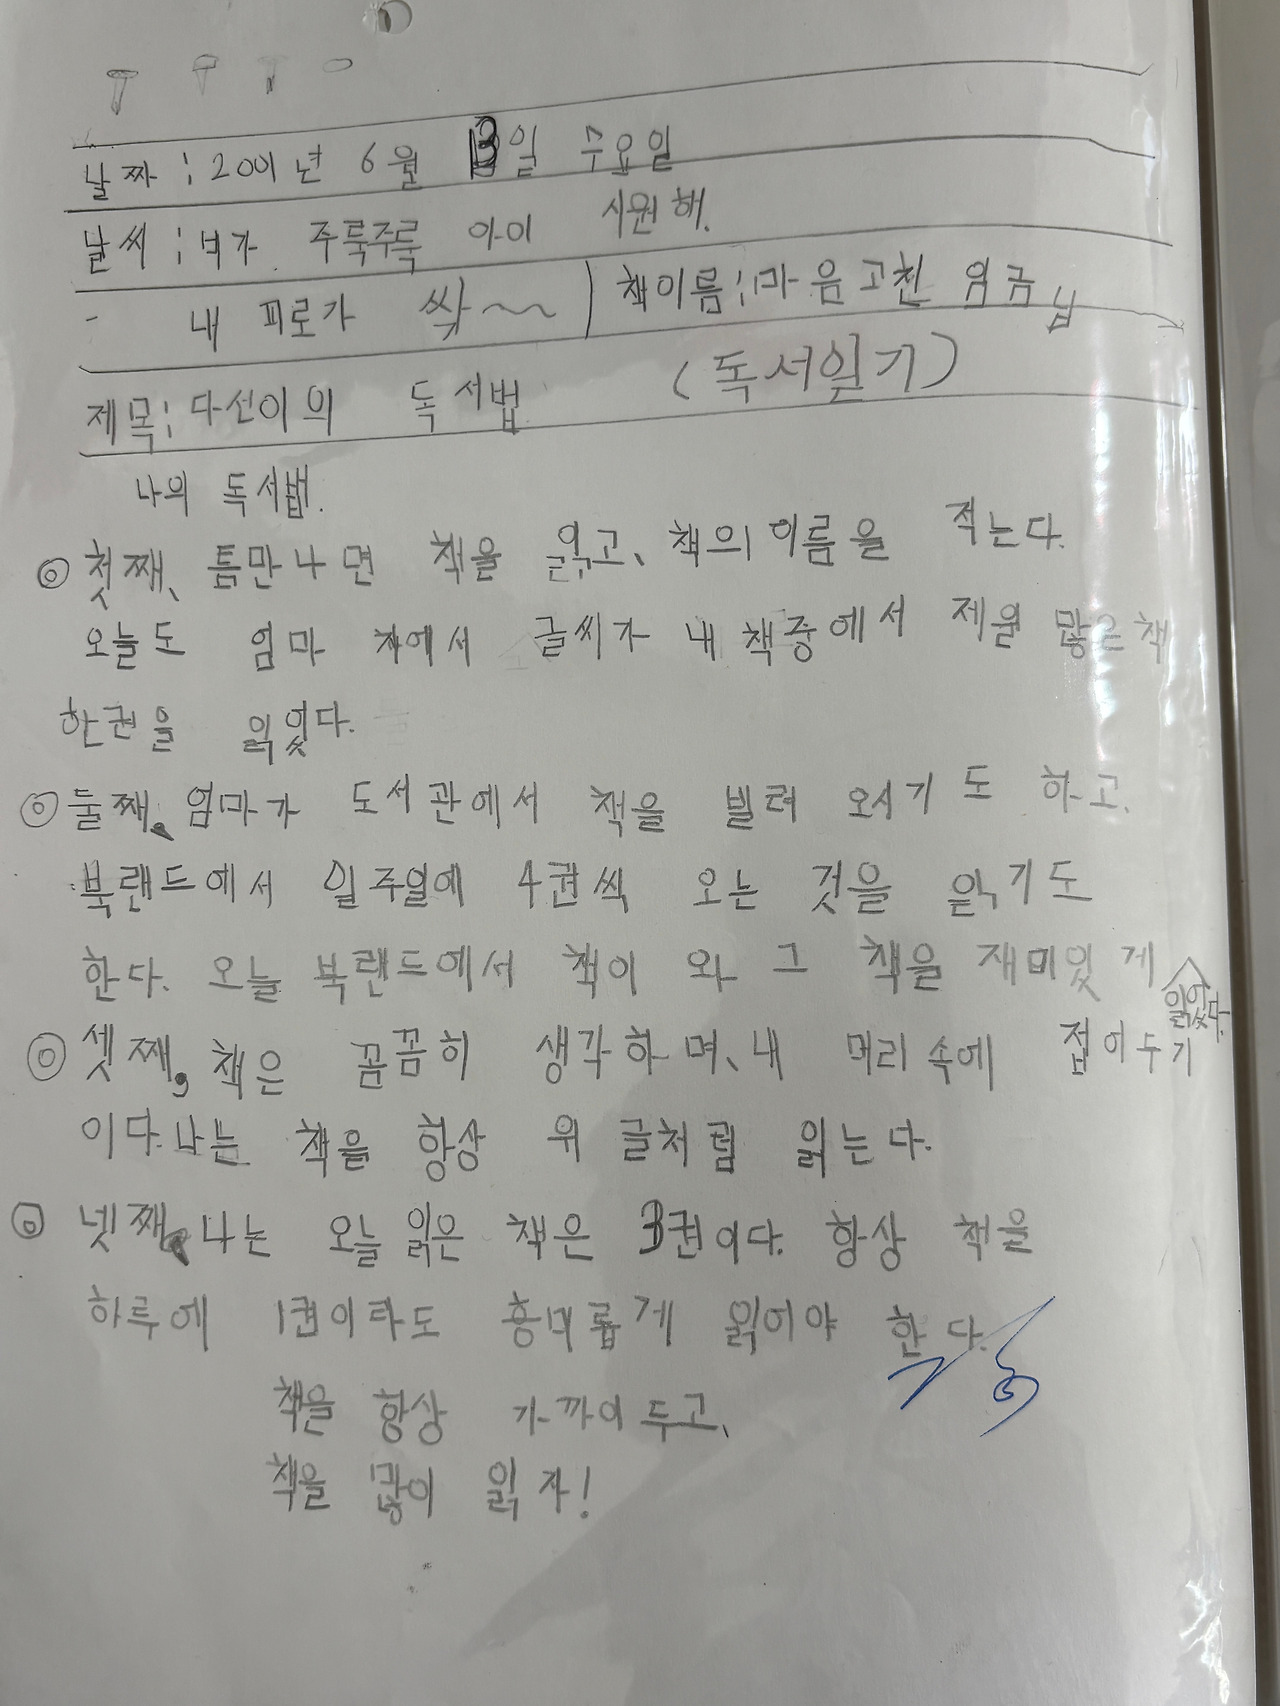 날짜 : 2001년 6월 13일 수요일
날씨 : 비가 주룩주룩 아이 시원해.
- 내 피로가 싹~~ ) 책이름 : 마음고친 임금님
제목 : 다선이의 독서법 (독서일기)
나의 독서법.
◎ 첫째, 틈만나면 책을 읽고, 책의 이름을 적는다.
오늘도 엄마 차에서 글씨가 내 책중에서 제일 많은 책
한권을 읽었다.
◎ 둘째, 엄마가 도서관에서 책을 빌려 오시기도 하고,
북랜드에서 일주일에 4권씩 오는 것을 읽기도
한다. 오늘 북랜드에서 책이 와 그 책을 재미있게 읽었다.
◎ 셋째, 책은 꼼꼼히 생각하며, 내 머리 속에 접어두기
이다. 나는 책을 항상 위 글처럼 읽는다.
◎ 넷째, 나는 오늘 읽은 책은 3권이다. 항상 책을
하루에 1권이라도 흥미롭게 읽어야 한다.
책을 항상 가까이 두고,
책을 많이 읽자!